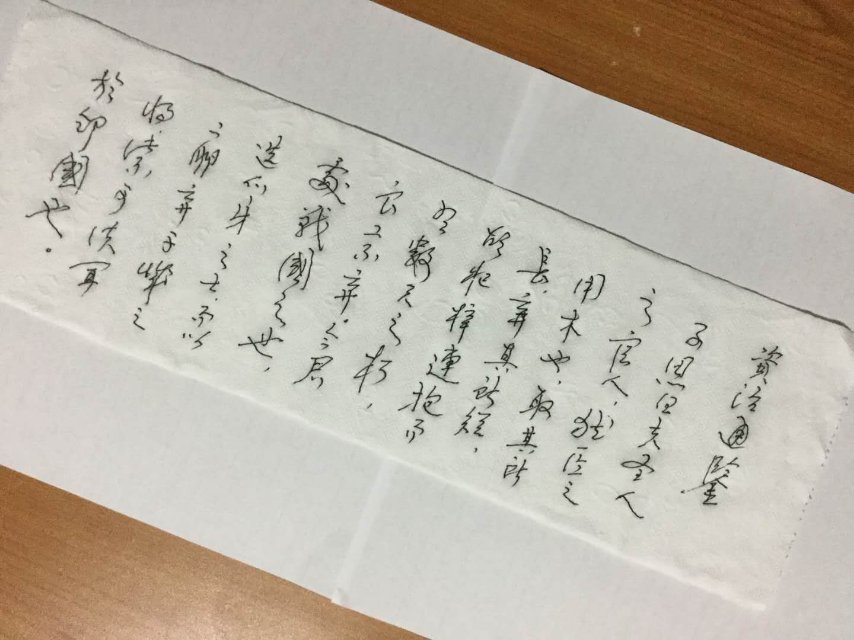 資治通鑒
子思曰夫圣人
之官人,猶匠之
用木也,取其所
長,弃其所短,
故杞梓連抱而
有數尺之朽,
良工不弃。今君
處戰國之世,
選爪牙之士,而以
二卵弃干城之
将,此不可使闻
於邻國也。